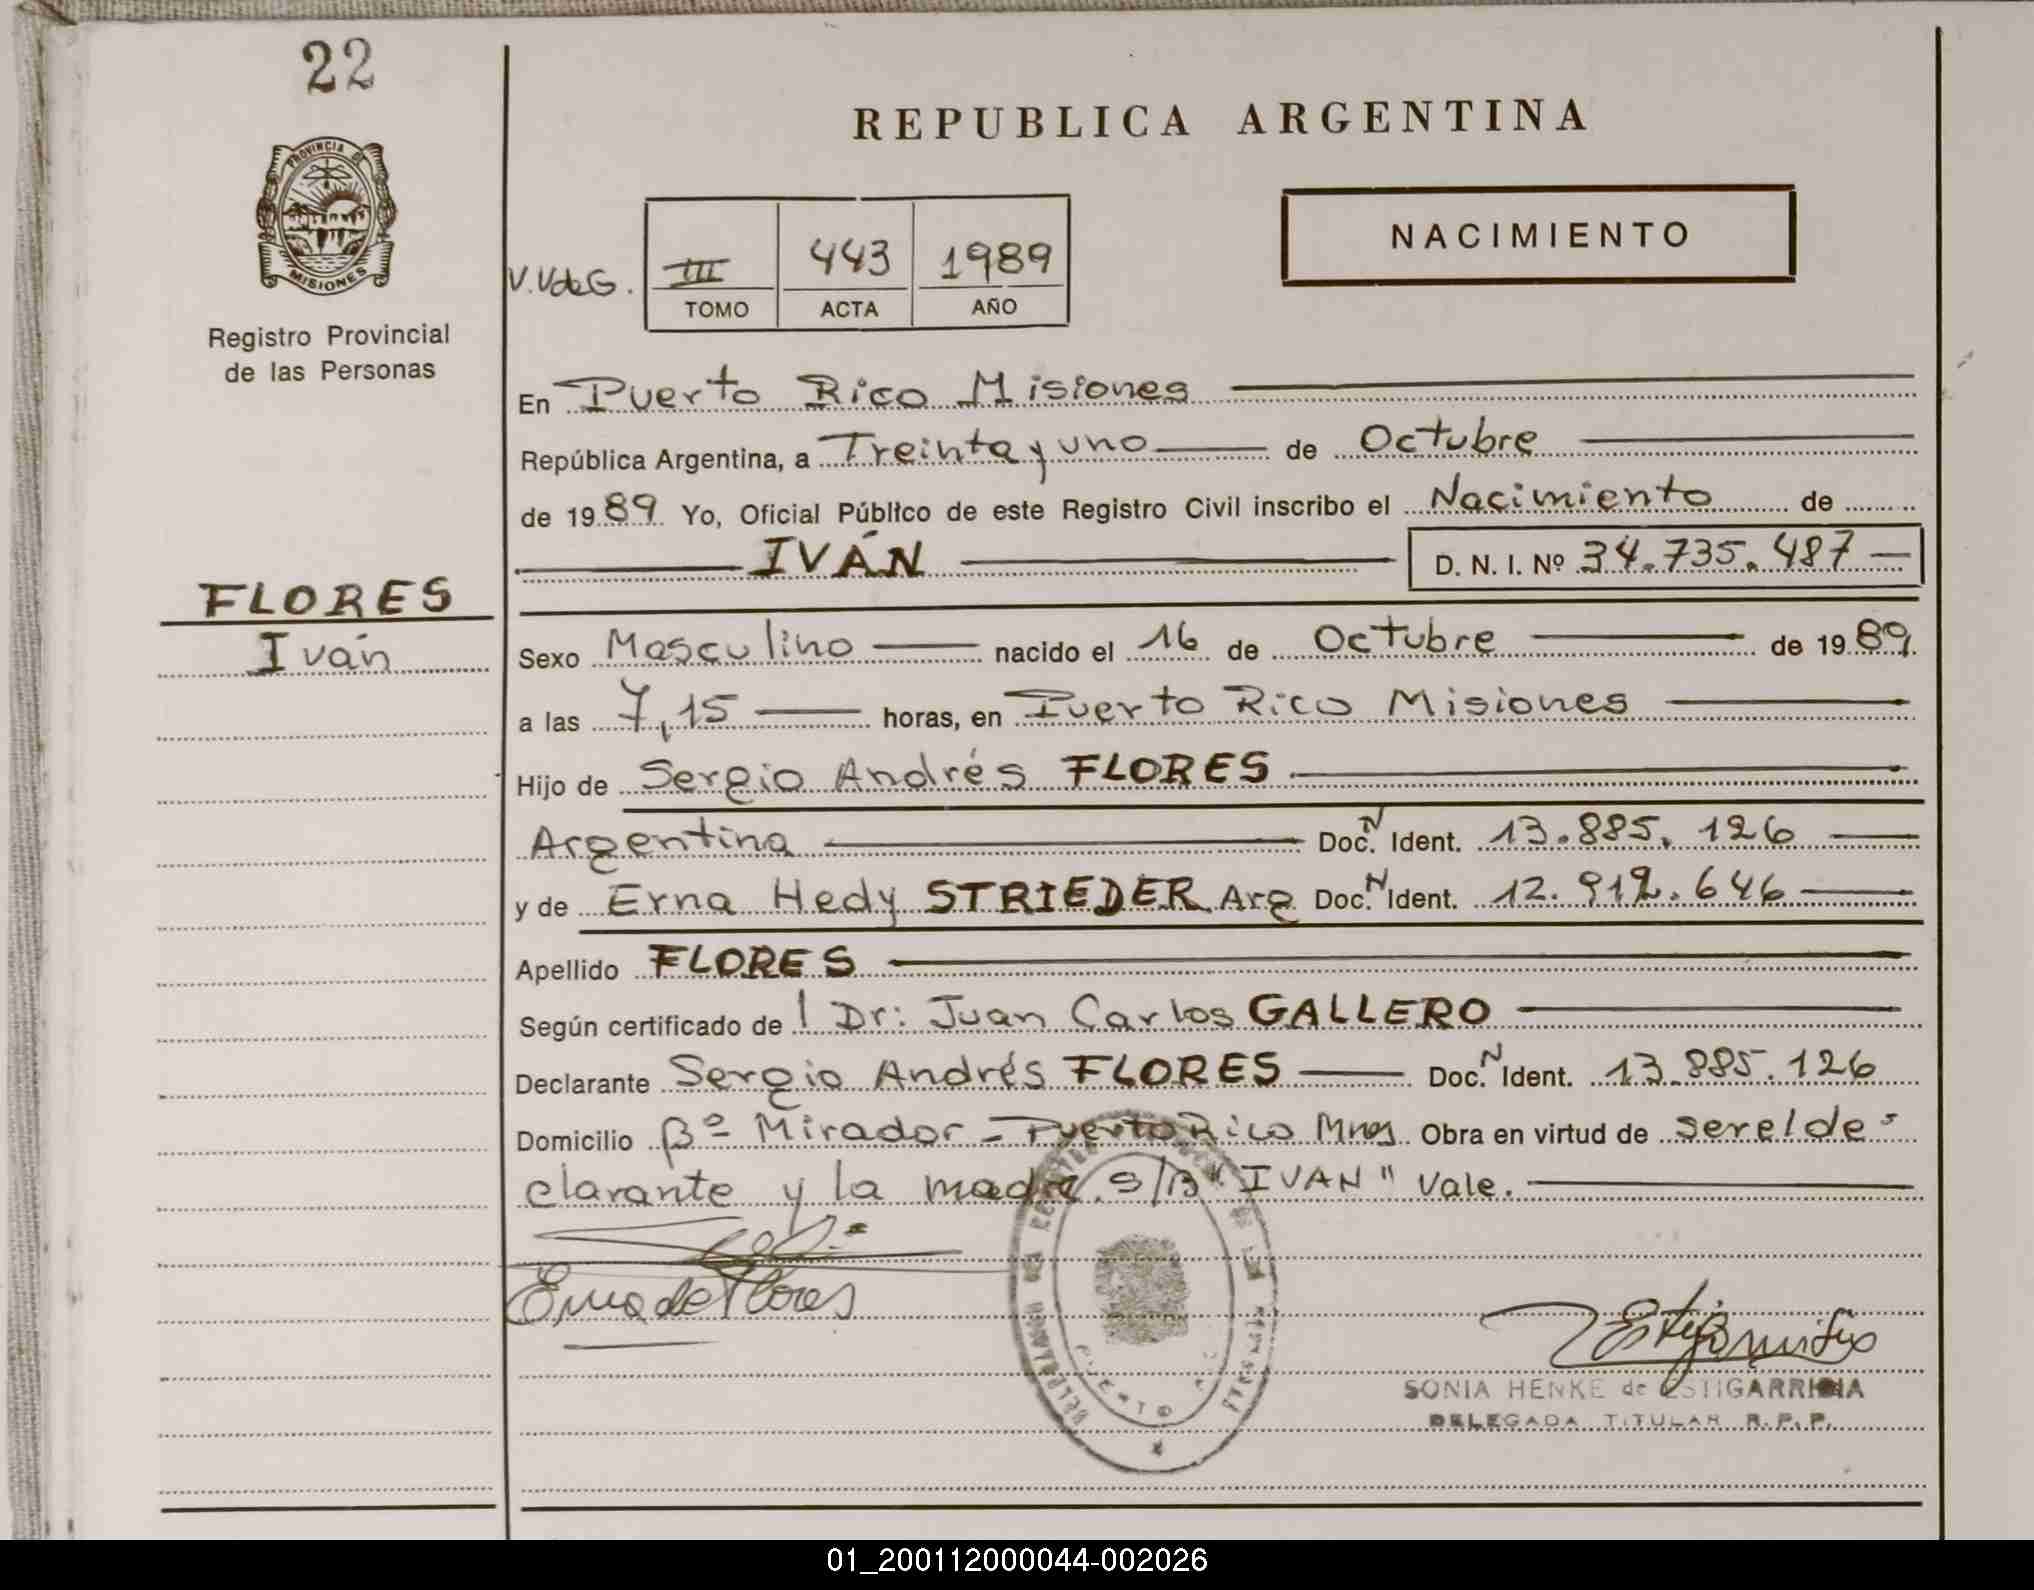 22
REPUBLICA ARGENTINA
PROVINCIA DE
MISIONES
Registro Provincial
de las Personas
NACIMIENTO
V.VdeG.
III 443 1989
TOMO ACTA AÑO
En Puerto Rico Misiones
República Argentina, a Treinta y uno de Octubre
de 1989 Yo, Oficial Público de este Registro Civil inscribo el Nacimiento de
IVÁN D. N. I. Nº 34.735.487
FLORES
Iván
Sexo Masculino nacido el 16 de Octubre de 1989
a las 7,15 horas, en Puerto Rico Misiones
Hijo de Sergio Andrés FLORES
Argentina Doc. N Ident. 13.885.126
y de Erna Hedy STRIEDER Arg Doc. N Ident. 12.912.646
Apellido FLORES
Según certificado de l Dr: Juan Carlos GALLERO
Declarante Sergio Andrés FLORES Doc. N Ident. 13.885.126
Domicilio Bº Mirador - Puerto Rico Mnes Obra en virtud de ser el de-
clarante y la madre. S/B "IVAN" Vale.
Erna de Flores
SONIA HENKE de ESTIGARRIBIA
DELEGADA TITULAR R.P.P.
01_200112000044-002026